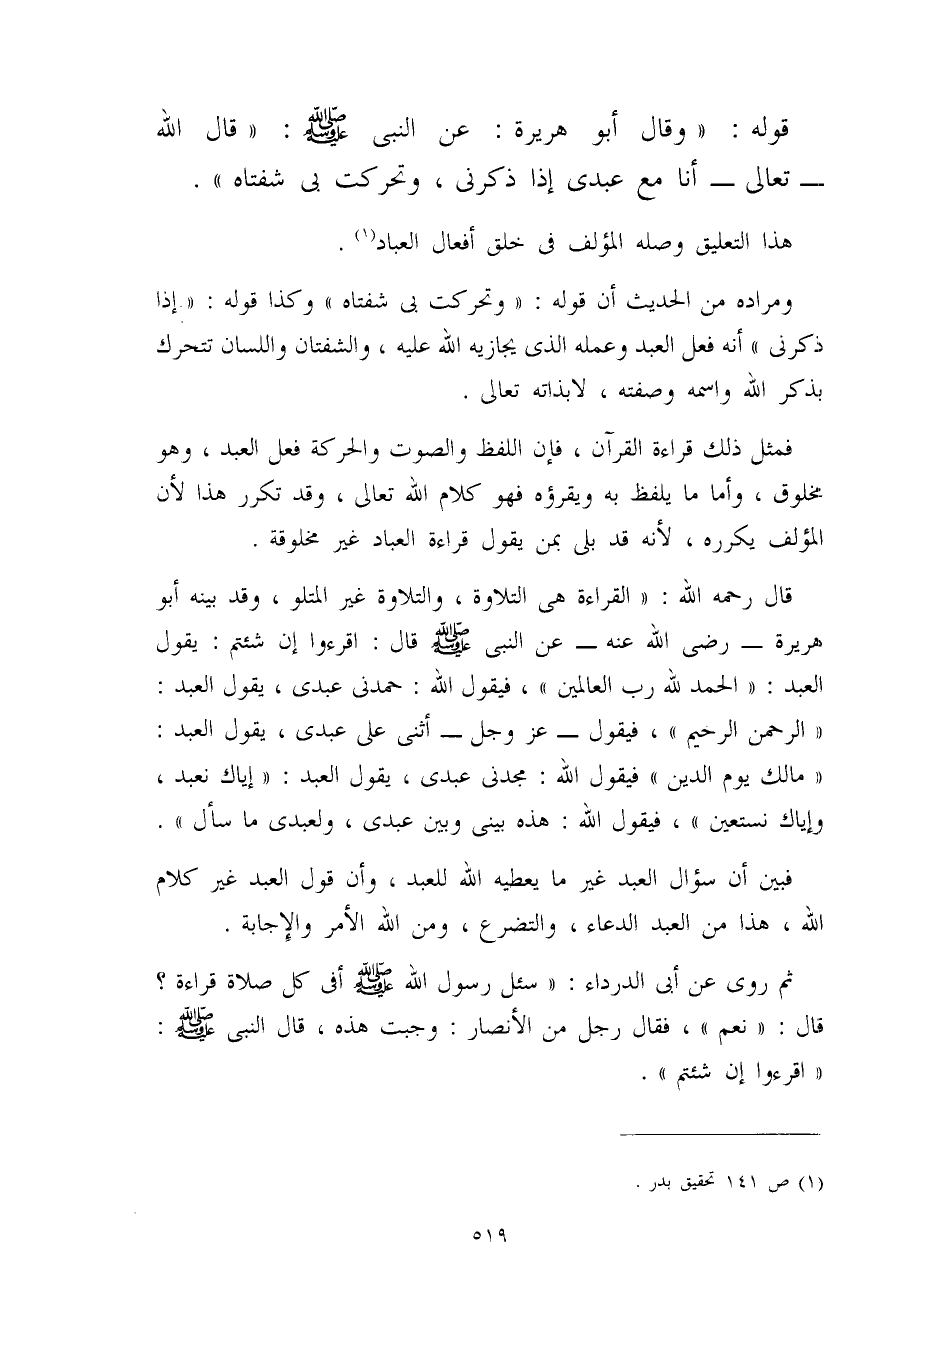 قوله : « وقال أبو هريرة : عن النبى ﷺ : « قال الله
ــ تعالى ــ أنا مع عبدى إذا ذكرنى ، وتحركت بى شفتاه » .
هذا التعليق وصله المؤلف فى خلق أفعال العباد(١) .
ومراده من الحديث أن قوله : « وتحركت بى شفتاه » وكذا قوله : « إذا
ذكرنى » أنه فعل العبد وعمله الذى يجازيه الله عليه ، والشفتان واللسان تتحرك
بذكر الله واسمه وصفته ، لابذاته تعالى .
فمثل ذلك قراءة القرآن ، فإن اللفظ والصوت والحركة فعل العبد ، وهو
مخلوق ، وأما ما يلفظ به ويقرؤه فهو كلام الله تعالى ، وقد تكرر هذا لأن
المؤلف يكرره ، لأنه قد بلى بمن يقول قراءة العباد غير مخلوقة .
قال رحمه الله : « القراءة هى التلاوة ، والتلاوة غير المتلو ، وقد بينه أبو
هريرة ــ رضى الله عنه ــ عن النبى ﷺ قال : اقرءوا إن شئتم : يقول
العبد : « الحمد لله رب العالمين » ، فيقول الله : حمدنى عبدى ، يقول العبد :
« الرحمن الرحيم » ، فيقول ــ عز وجل ــ أثنى على عبدى ، يقول العبد :
« مالك يوم الدين » فيقول الله : مجدنى عبدى ، يقول العبد : « إياك نعبد ،
وإياك نستعين » ، فيقول الله : هذه بينى وبين عبدى ، ولعبدى ما سأل » .
فبين أن سؤال العبد غير ما يعطيه الله للعبد ، وأن قول العبد غير كلام
الله ، هذا من العبد الدعاء ، والتضرع ، ومن الله الأمر والإجابة .
ثم روى عن أبى الدرداء : « سئل رسول الله ﷺ أفى كل صلاة قراءة ؟
قال : « نعم » ، فقال رجل من الأنصار : وجبت هذه ، قال النبى ﷺ :
« اقرءوا إن شئتم » .
(١) ص ١٤١ تحقيق بدر .
٥١٩